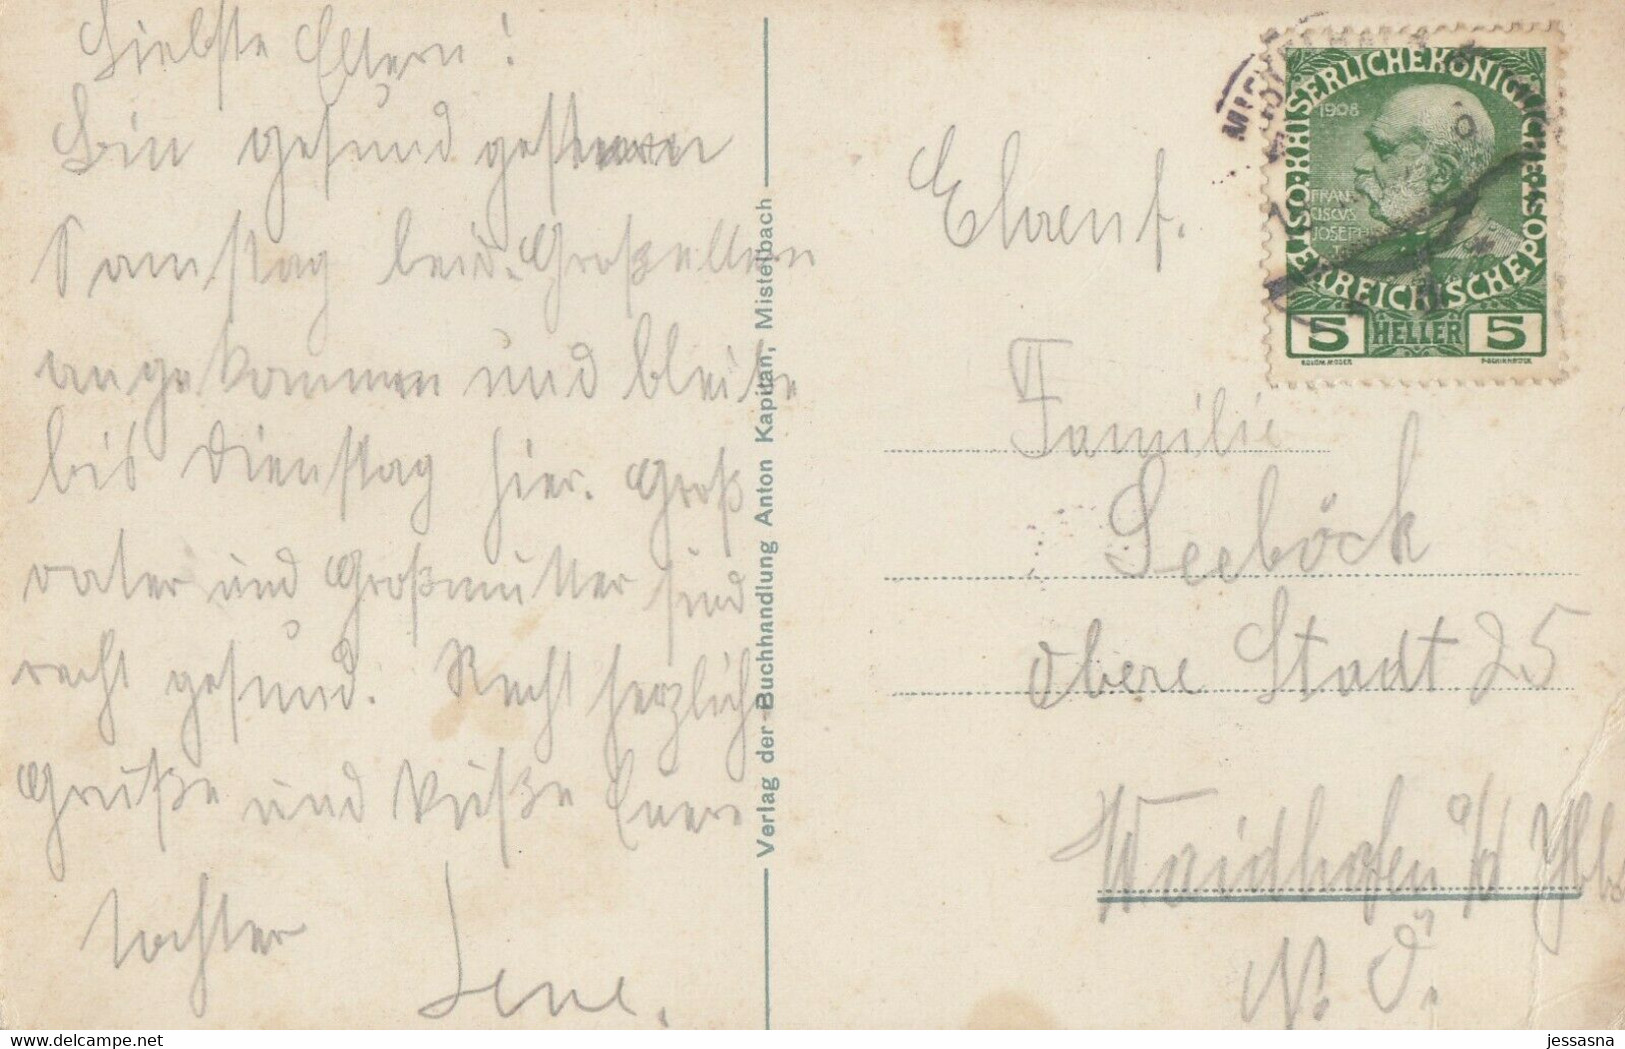 Liebste Eltern!
Bin gesund gestern
Samstag bei d. Großeltern
angekommen und bleibe
bis Dienstag hier. Groß
vater und Großmutter sind
recht gesund. Recht herzliche
Grüße und Küße Euere
tochter
Lene.
Verlag der Buchhandlung Anton Kapitan, Mistelbach
1908
KAISERLICHEKÖNIGLICHE
ÖSTERREICHISCHEPOST
FRAN
CISCVS
JOSEPH
I
5 HELLER 5
Ehrent.
Familie
Seeböck
obere Stadt 25
Waidhofen a/d Ybbs
N. Ö.
www.delcampe.net
jessasna